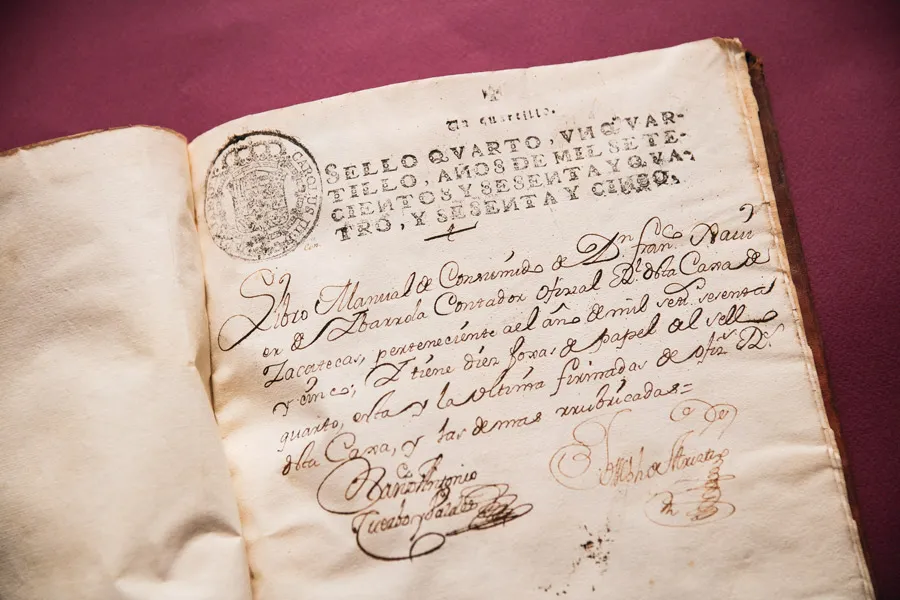 Un quartillo.
SELLO QVARTO, VN QVAR-
TILLO, AÑOS DE MIL SETE-
CIENTOS Y SESENTA Y QVA-
TRO, Y SESENTA Y CINCO.
CAROLUS III
Libro Manual de Consumido de Dn. Franco. Xavi
er de Ybarrola Contador oficial Rl. desta Caxa de
Zacatecas, perteneciente ael año de mil sets. sesenta
y cinco; Y tiene diez foxas de papel del sello
quarto, esta y la ultima firmadas de ofizs. Rs.
desta Caxa, y las demas rrubricadas=
Antonio